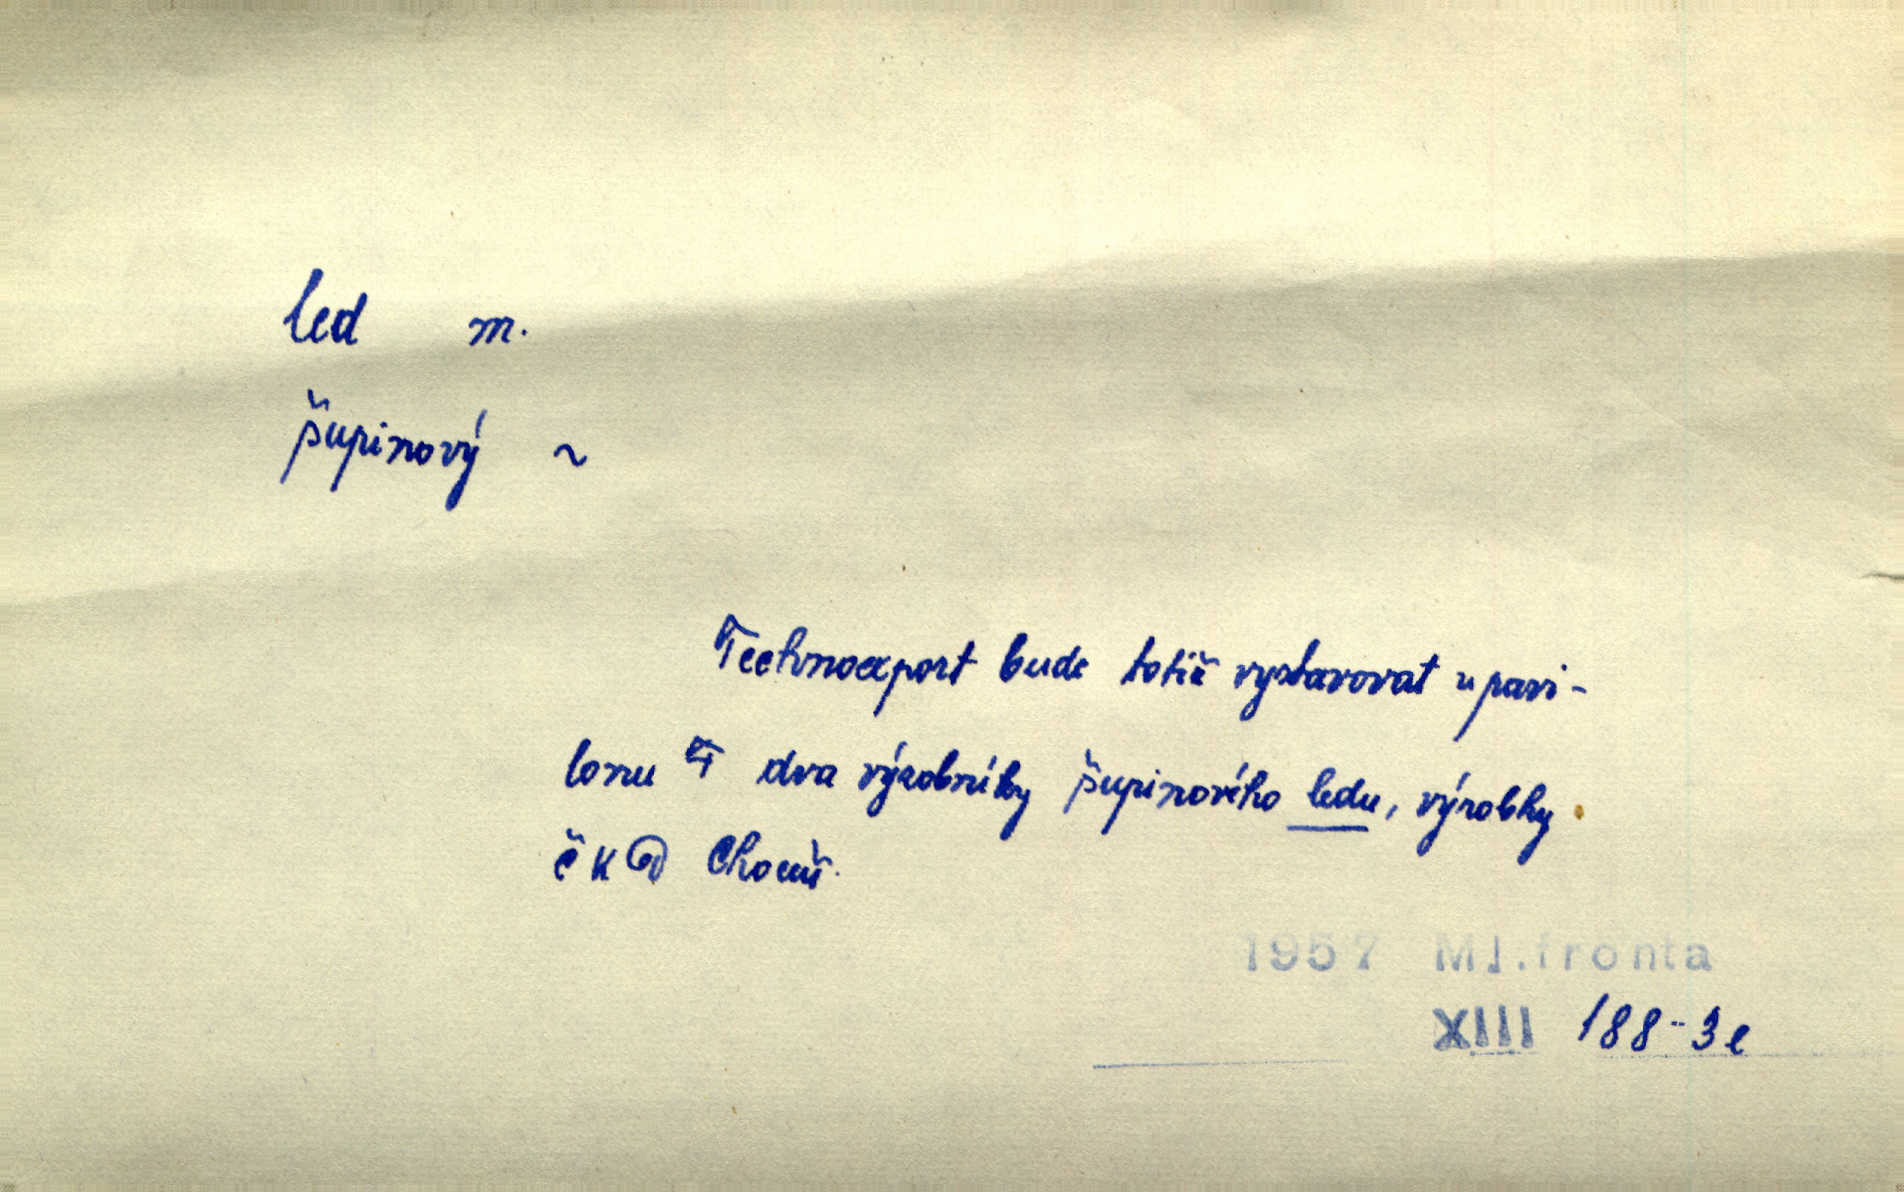 led m.
šupinový ~
Technoexport bude totiž vystavovat u pavi-
lonu T dva výrobníky šupinového ledu, výrobky
ČKD Choceň.
1957 Ml.fronta
XIII 188-3e